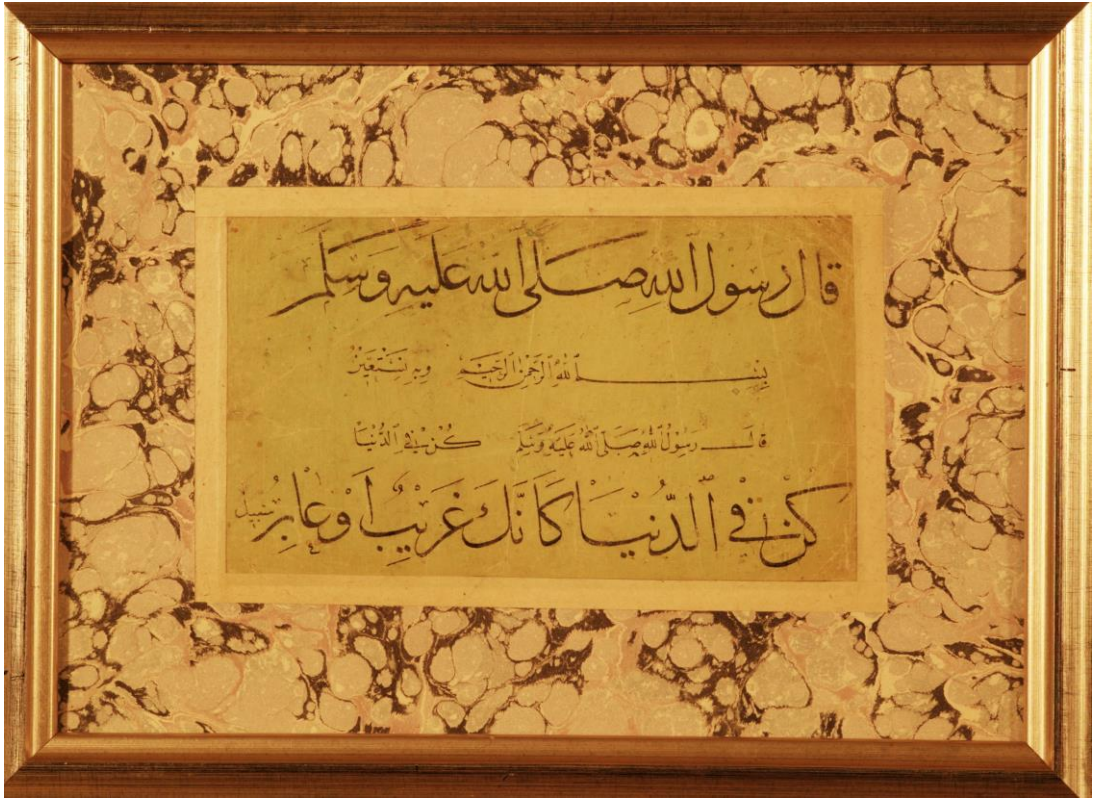 قال رسول الله صلى الله عليه وسلم
بِسْمِ ٱللهِ ٱلرَّحْمٰنِ ٱلرَّحِيمِ وَبِهِ نَسْتَعِينُ
قَالَ رَسُولُ اللهِ صَلَّى اللهُ عَلَيْهِ وَسَلَّمَ كُنْ فِي الدُّنْيَا
كُنْ فِي ٱلدُّنْيَا كَأَنَّكَ غَرِيبٌ أَوْ عَابِرُ سبيل